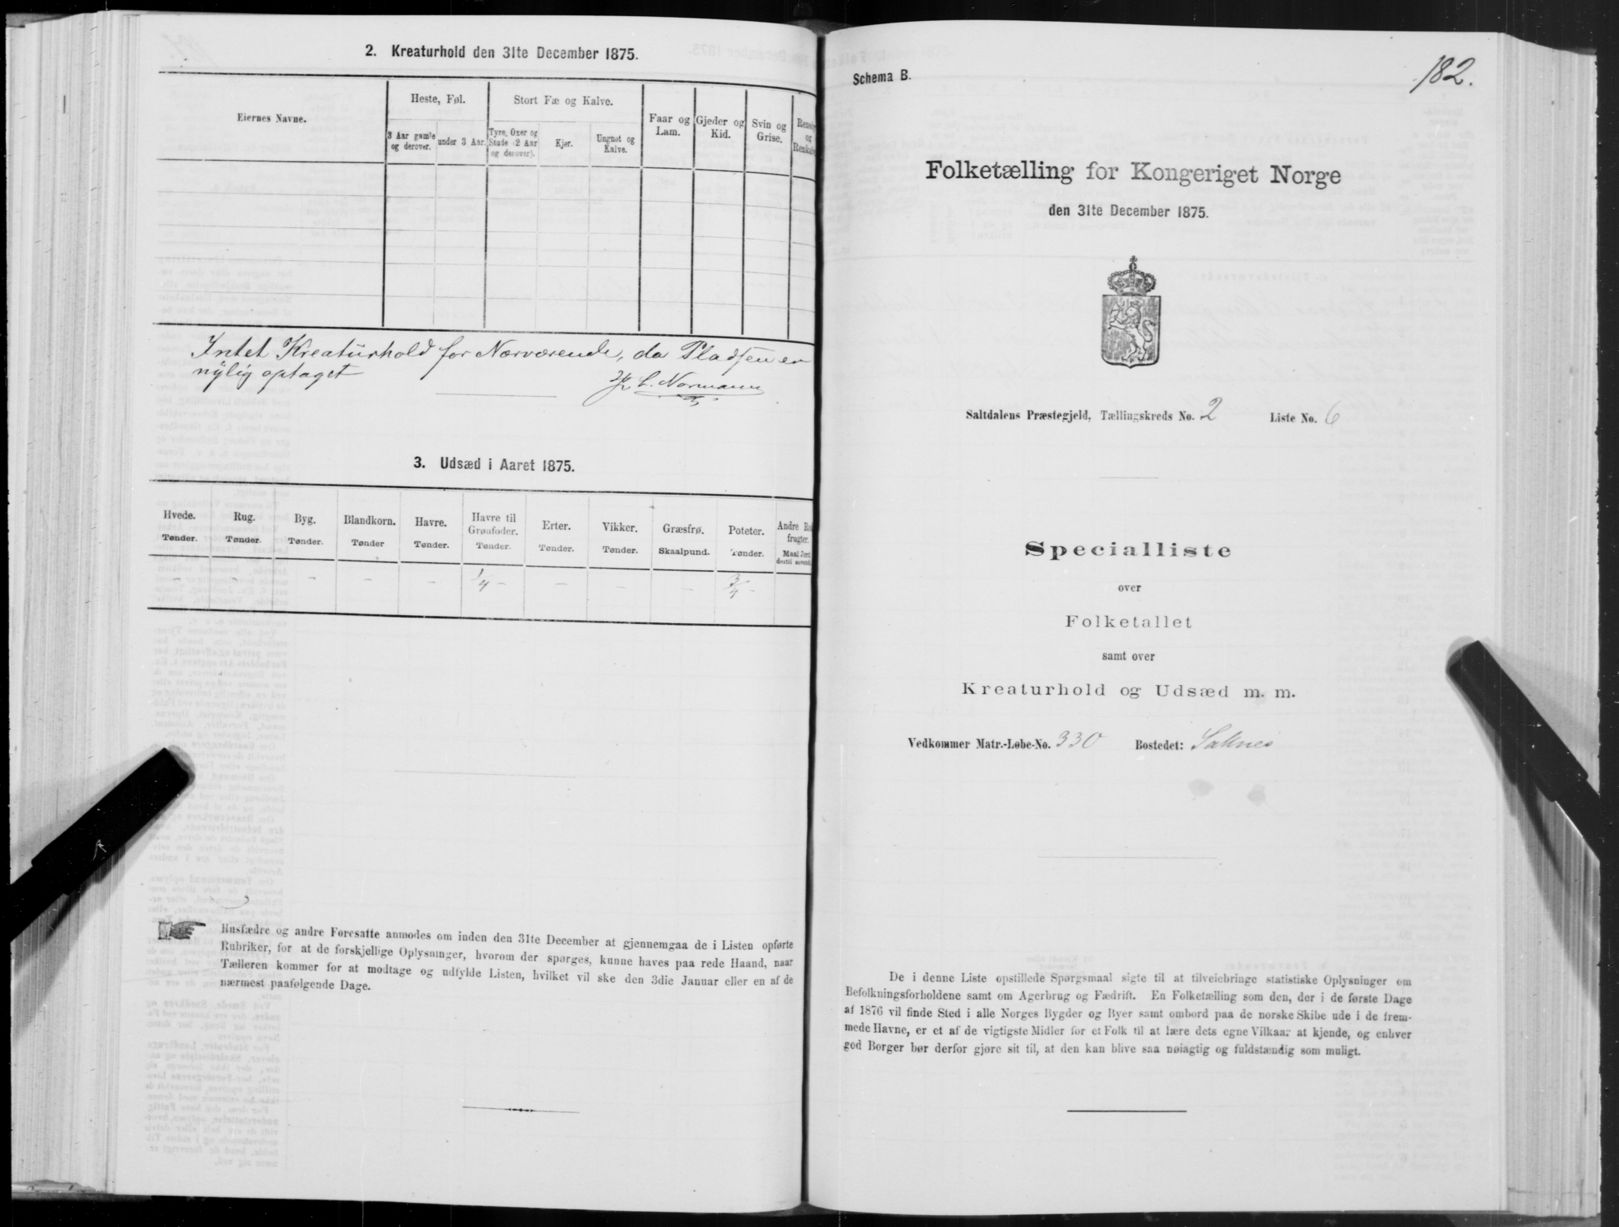 2. Kreaturhold den 31te December 1875.
Eiernes Navne.
Heste, Føl.
Stort Fæ og Kalve.
Faar og Lam.
Gjeder og Kid.
Svin og Grise.
3 Aar gamle og derover.
under 3 Aar.
Tyre, Oxer og Stude (2 Aar og derover).
Kjør.
Ungnøt og Kalve.
Intet Kreaturhold for Nærværende, da Pladsen er
nylig optaget
L. Normann
3. Udsæd i Aaret 1875.
Hvede.
Rug.
Byg.
Blandkorn.
Havre.
Havre til Grønfoder.
Erter.
Vikker.
Græsfrø.
Poteter.
Tønder.
Tønder.
Tønder.
Tønder
Tønder.
Tønder.
Tønder.
Tønder.
Skaalpund.
Tønder.
– – – – – 1/4 – – – – 3/4 –
Husfædre og andre Foresatte anmodes om inden den 31te December at gjennemgaa de i Listen opførte
Rubriker, for at de forskjellige Oplysninger, hvorom der spørges, kunne haves paa rede Haand, naar
Tælleren kommer for at modtage og udfylde Listen, hvilket vil ske den 3die Januar eller en af de
nærmest paafølgende Dage.
182.
Schema B.
Folketælling for Kongeriget Norge
den 31te December 1875.
Saltdalens Præstegjeld, Tællingskreds No. 2 Liste No. 6
Specialliste
over
Folketallet
samt over
Kreaturhold og Udsæd m. m.
Vedkommer Matr.-Løbe-No. 330 Bostedet: Saknes
De i denne Liste opstillede Spørgsmaal sigte til at tilveiebringe statistiske Oplysninger om
Befolkningsforholdene samt om Agerbrug og Fædrift. En Folketælling som den, der i de første Dage
af 1876 vil finde Sted i alle Norges Bygder og Byer samt ombord paa de norske Skibe ude i de frem-
mede Havne, er et af de vigtigste Midler for et Folk til at lære dets egne Vilkaar at kjende, og enhver
god Borger bør derfor gjøre sit til, at den kan blive saa nøiagtig og fuldstændig som muligt.